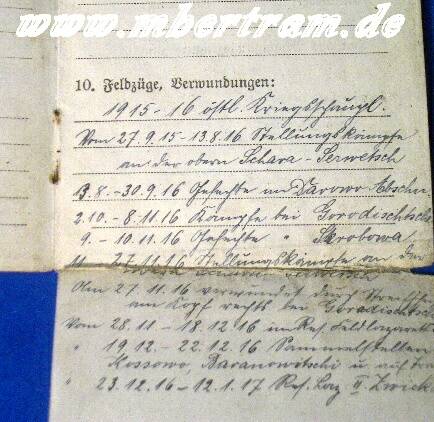 www.mbertram.de
10. Feldzüge, Verwundungen:
1915-16 östl. Kriegsschaupl.
Vom 27.9.15-13.8.16 Stellungskämpfe
an der obern Schara-Serwetsch
13.8.-30.9.16 Gefechte im Darowo Abschn
2.10.-8.11.16 Kämpfe bei Gorodischtsche
9.-10.11.16 Gefechte " Skrobowa
11. 27.11.16 Stellungskämpfe an der
Am 27.11.16 verwundet durch
am Kopf rechts bei Goradischtsch
Vom 28.11-18.12.16 im Res. Feldlazarett
" 19.12.-22.12.16 Sammelstellen
Kossowo, Baranowitschi u. auf
" 23.12.16-12.1.17 Res. Laz. II. Zwick